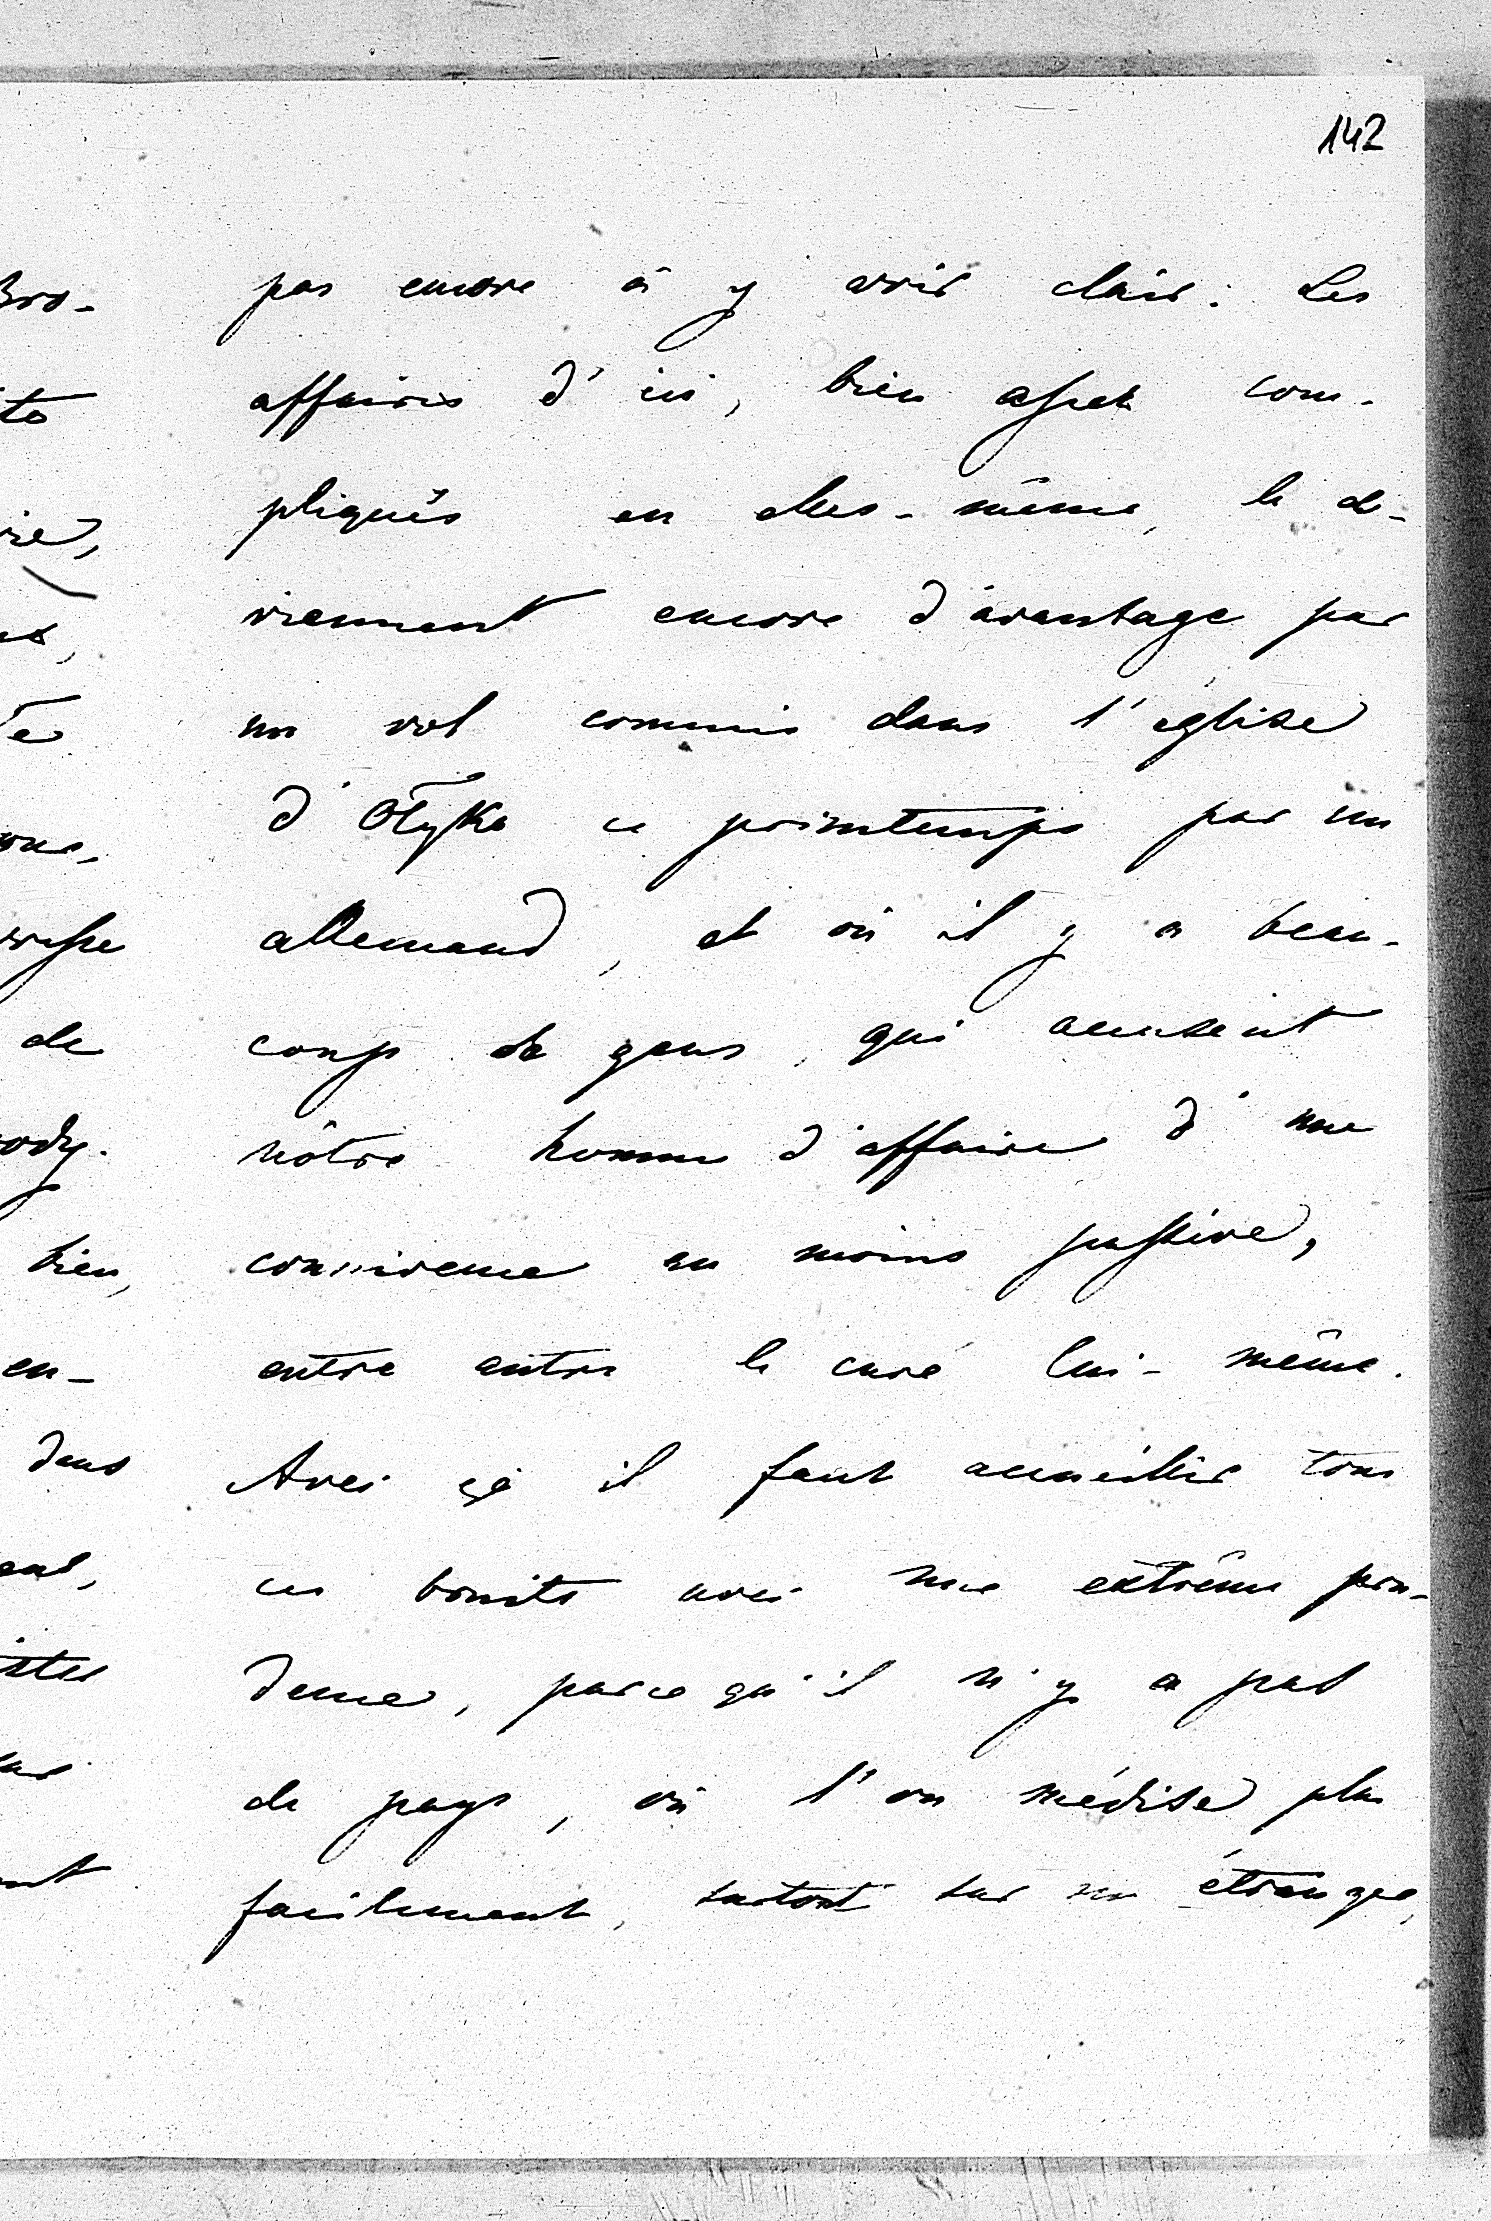 142
pas encore à y voir clair. Les
affaires d'ici, bien assez com-
pliqués en elles-même, le de-
viennent encore d'avantage par
un vol commis dans l'église
d'Ołyka ce printemps par un
allemand, et où il y a beau-
coup de gens, qui accuseint
nôtre homme d'affaire d'une
connivence au moins passive,
entre autre le curé lui-même.
Avec ça il faut accueillir tous
ces bruits avec une extrême pru-
dence, parce qu'il n'y a pas
de pays, où l'on médise plus
facilement, surtout sur un étranger,
Bro-
de
ody.
bien,
en-
dans